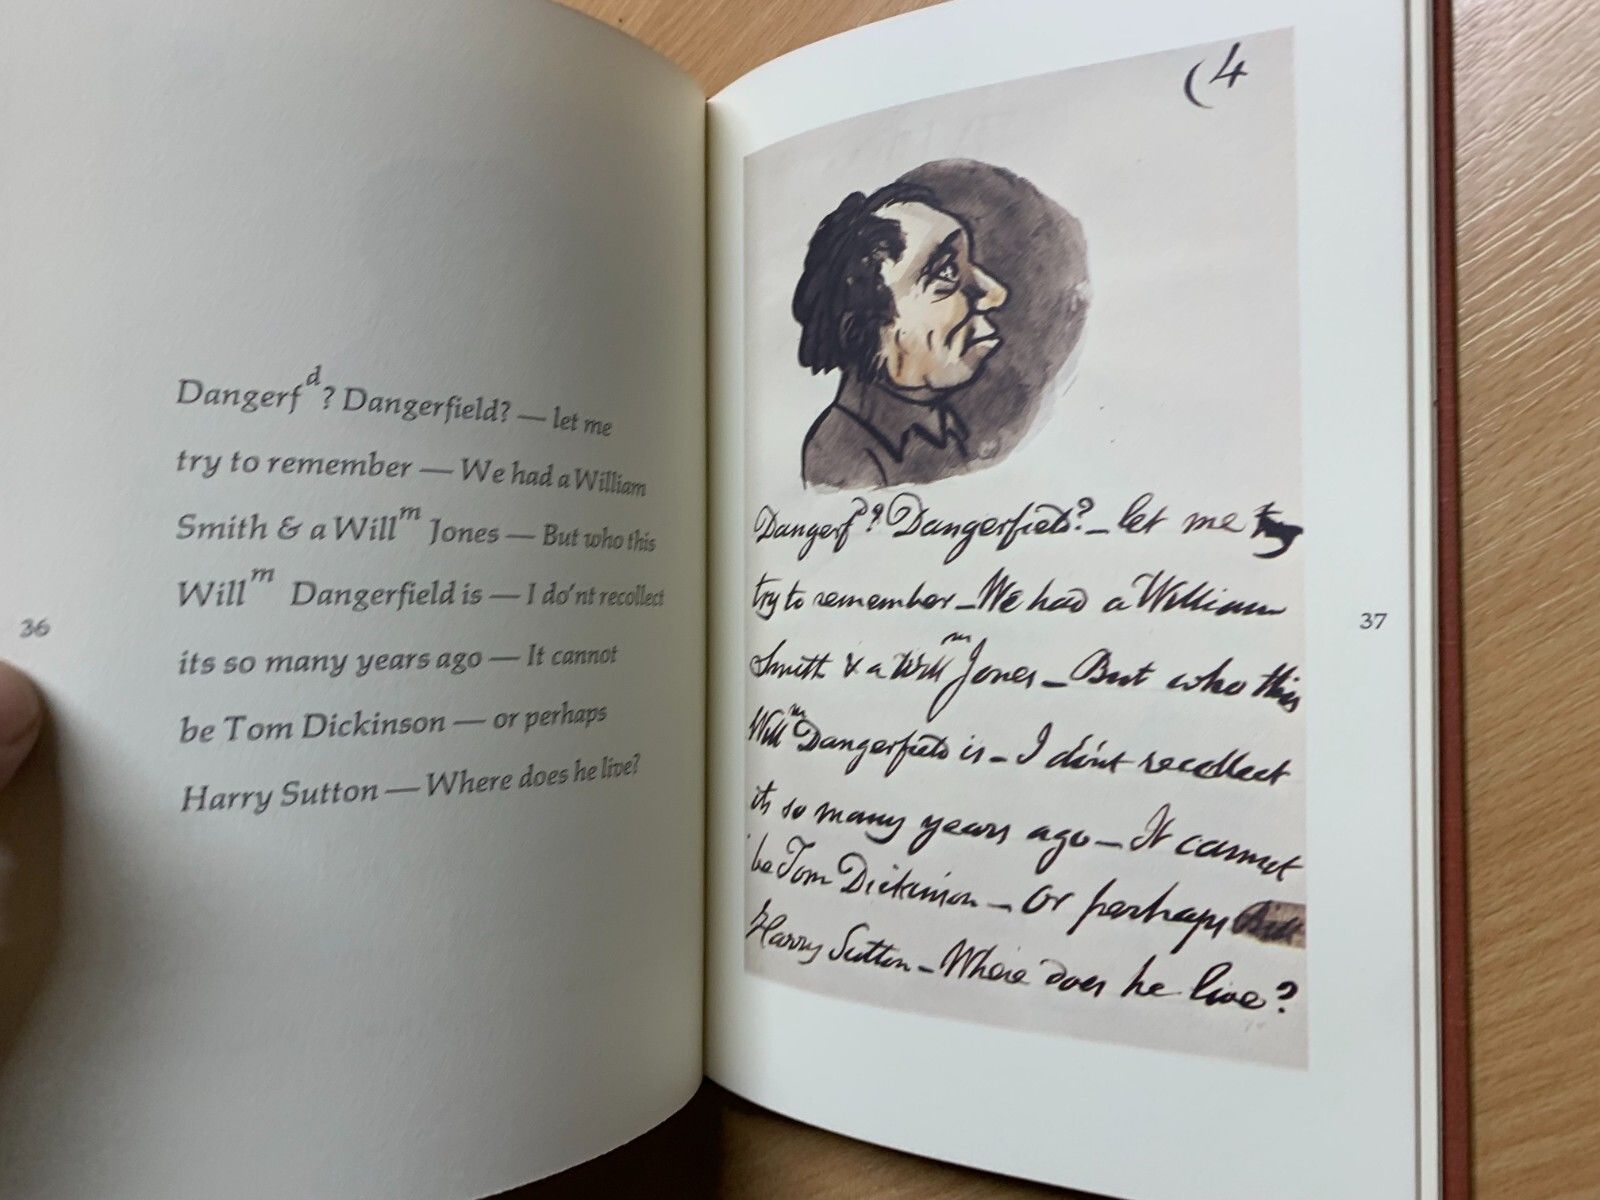 Dangerfᵈ? Dangerfield? — let me
try to remember — We had a William
Smith & a Willᵐ Jones — But who this
Willᵐ Dangerfield is — I do'nt recollect
its so many years ago — It cannot
be Tom Dickinson — or perhaps
Harry Sutton — Where does he live?
36
(4
Dangerfᵈ? Dangerfield? — let me
try to remember — We had a William
Smith & a Willᵐ Jones — But who this
Willᵐ Dangerfield is — I do'nt recollect
its so many years ago — It cannot
be Tom Dickinson — or perhaps
Harry Sutton — Where does he live?
37